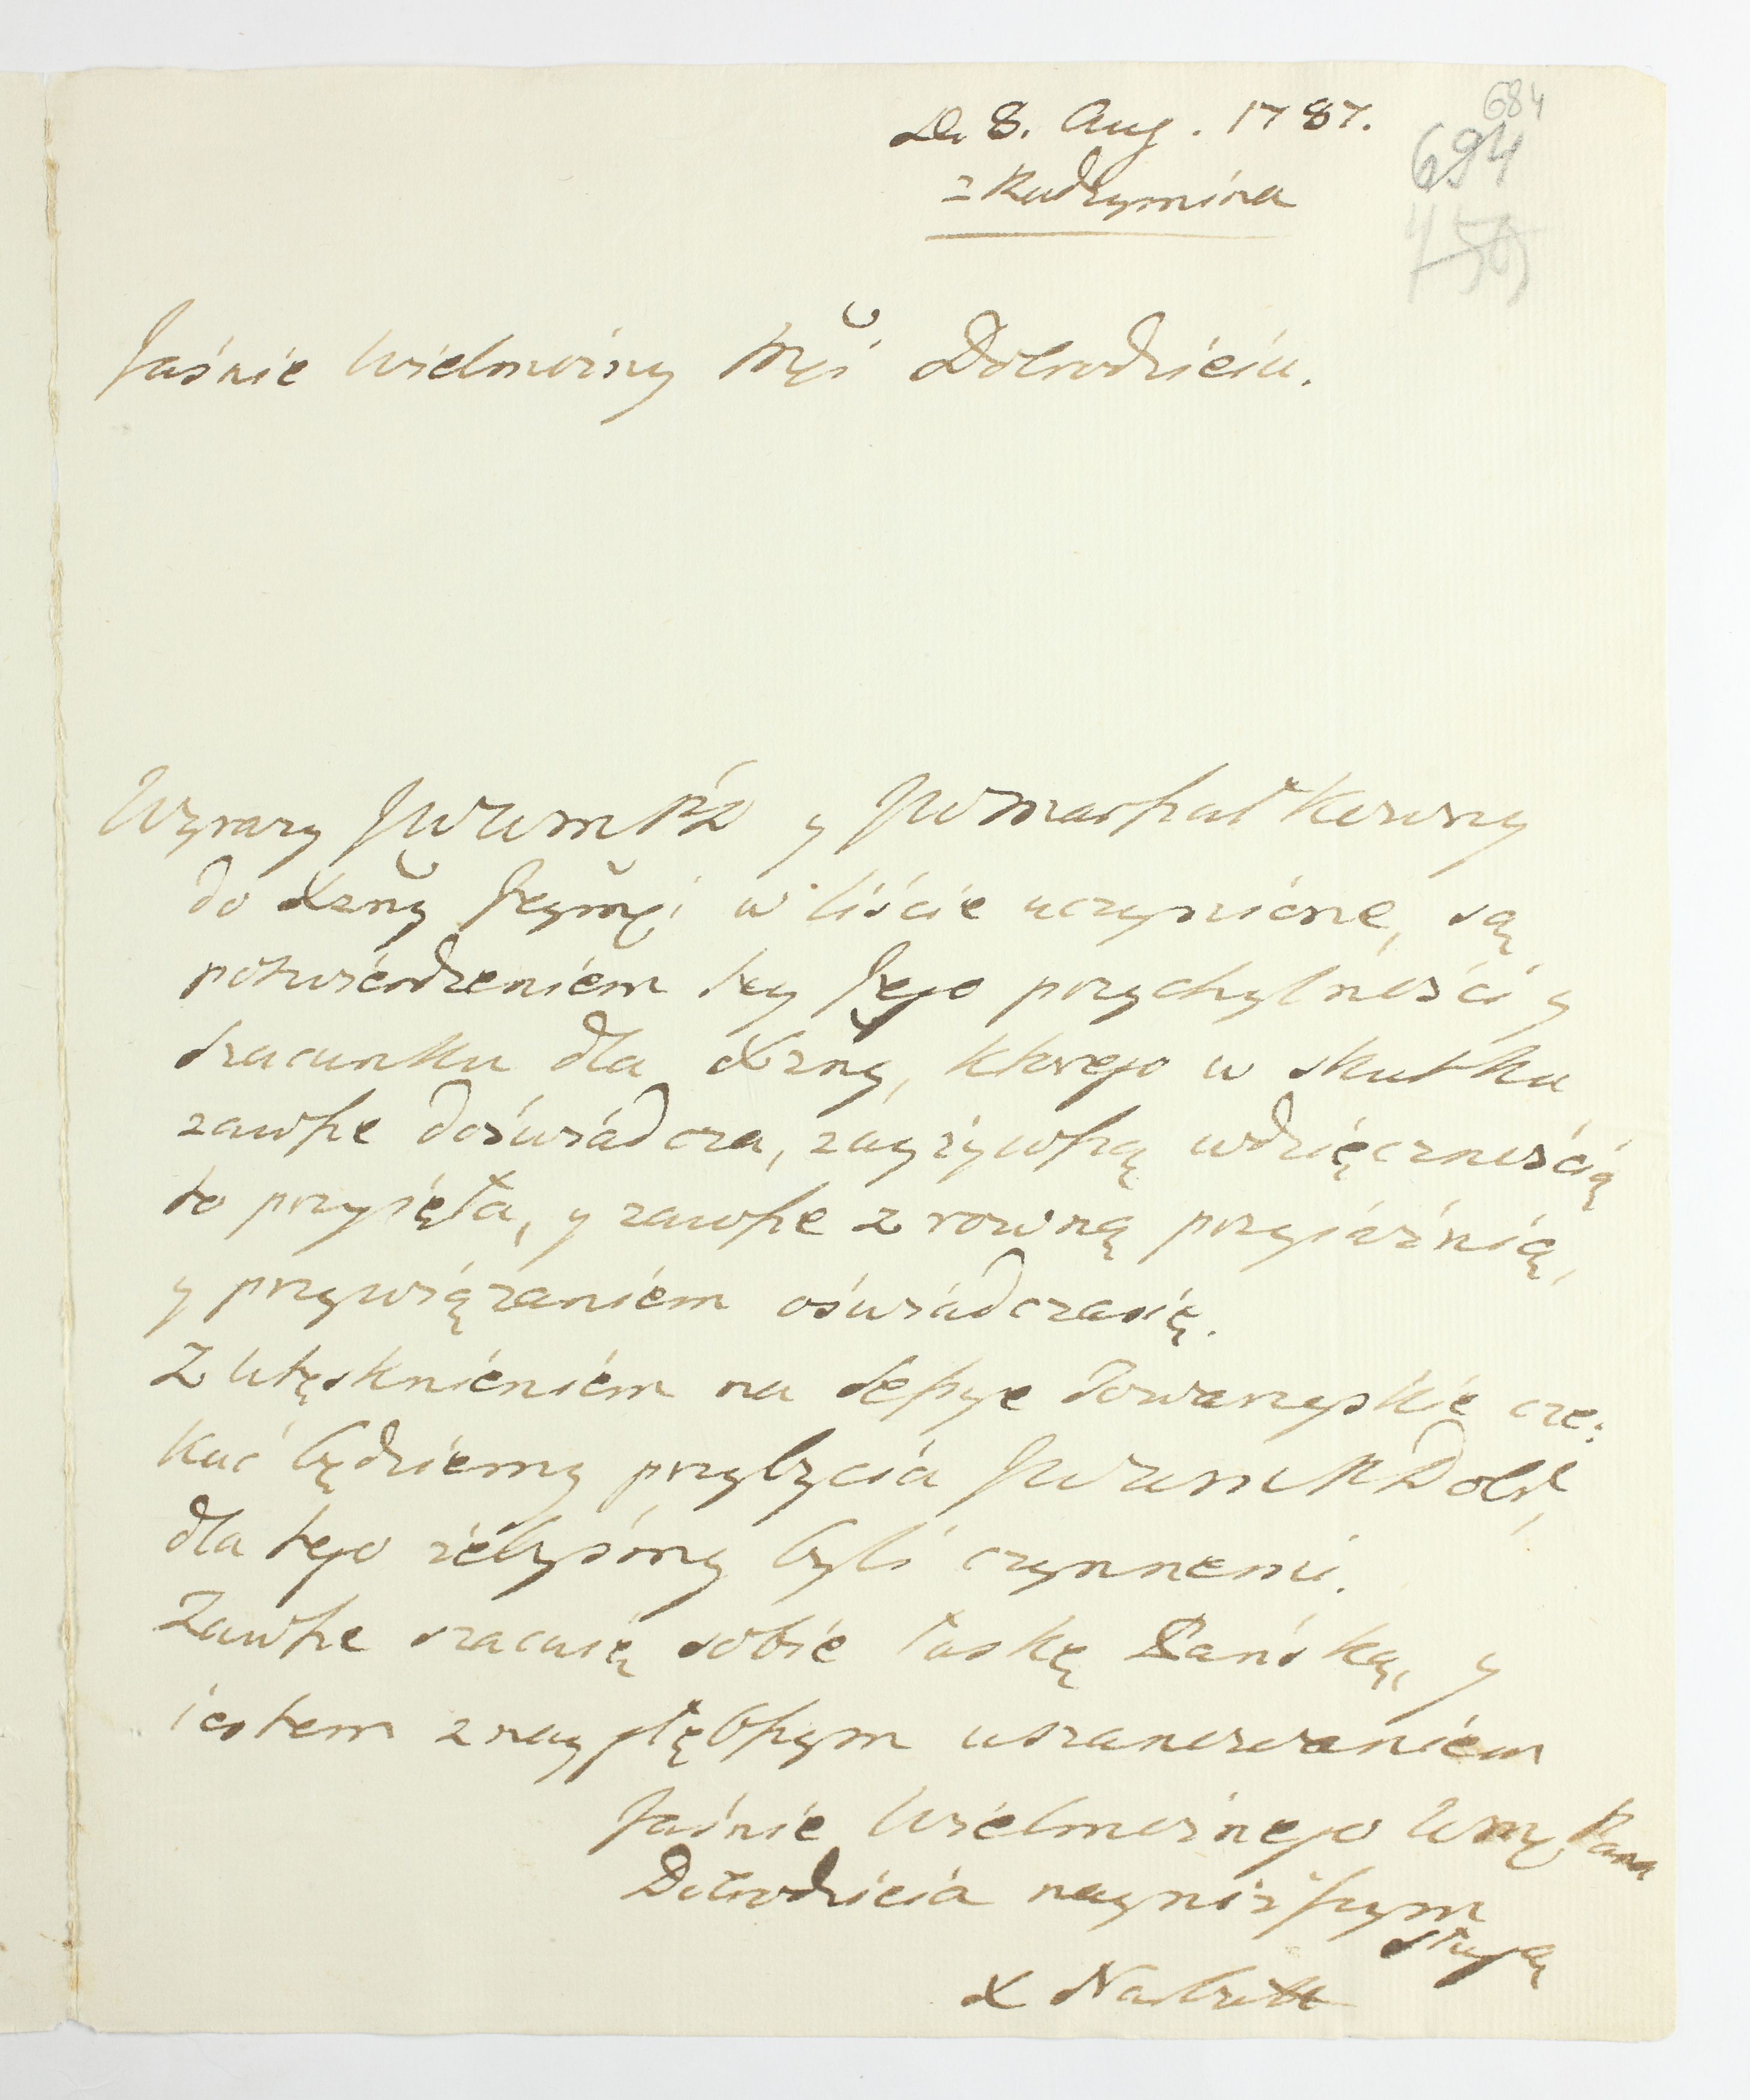 684
D. 8. Aug. 1787.
694
z Radzymina
Jaśnie Wielmożny Mći Dobrodzieiu.
Wyrazy JWWMPD y JWMarszałkowny
do Xzny Jeymći w liście uczynione, są
potwierdzeniem tey Jego przychylności y
szacunku dla Xzny, ktorego w skutku
zawsze doświadcza, z nayżywszą wdzięcznością
to przyięła, y zawsze z rowną przyiaźnią,
y przywiązaniem oświadczasię.
Z utęsknieniem na Sessye Towarzyskie cze:
kać będziemy przybycia JWWMPDobr,
dla tego żebyśmy byli czynnemi.
Zawsze szacuię sobie łaskę Pańską, y
iestem z naygłębszym uszanowaniem
Jaśnie Wielmożnego Wmć Pana
Dobrodzieia nayniższym
sługą
X Narbutt